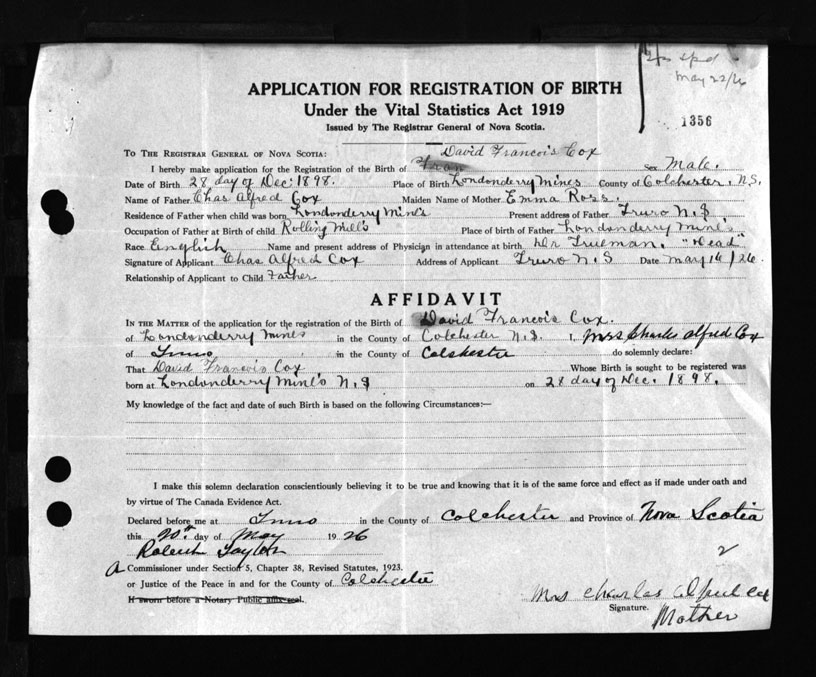 May 22/26
APPLICATION FOR REGISTRATION OF BIRTH
Under the Vital Statistics Act 1919
Issued by The Registrar General of Nova Scotia.
1356
TO THE REGISTRAR GENERAL OF NOVA SCOTIA:
David Francois Cox
I hereby make application for the Registration of the Birth of Fran Sex Male.
Date of Birth 28 day of Dec: 1898. Place of Birth Londonderry Mines County of Colchester, N.S.
Name of Father Chas Alfred Cox Maiden Name of Mother Emma Ross.
Residence of Father when child was born Londonderry Mine's Present address of Father Truro N.S
Occupation of Father at Birth of child Rolling Mill's Place of birth of Father Londonderry Mine's
Race English Name and present address of Physician in attendance at birth Dr Trueman. "Dead"
Signature of Applicant Chas Alfred Cox Address of Applicant Truro N.S Date May 16/26.
Relationship of Applicant to Child Father
AFFIDAVIT
IN THE MATTER of the application for the registration of the Birth of David Francois Cox.
of Londonderry Mines in the County of Colchester N.S. I, Mrs Charles Alfred Cox
of Truro in the County of Colchester do solemnly declare:
That David Francois Cox Whose Birth is sought to be registered was
born at Londonderry Mine's N.S on 28 day of Dec. 1898.
My knowledge of the fact and date of such Birth is based on the following Circumstances:—
I make this solemn declaration conscientiously believing it to be true and knowing that it is of the same force and effect as if made under oath and
by virtue of The Canada Evidence Act.
Declared before me at Truro in the County of Colchester and Province of Nova Scotia
this 20th day of May 1926
Robert Taylor
2
A Commissioner under Section 5, Chapter 38, Revised Statutes, 1923.
or Justice of the Peace in and for the County of Colchester
If sworn before a Notary Public affix seal.
Mrs Charles Alfred Cox
Signature.
Mother